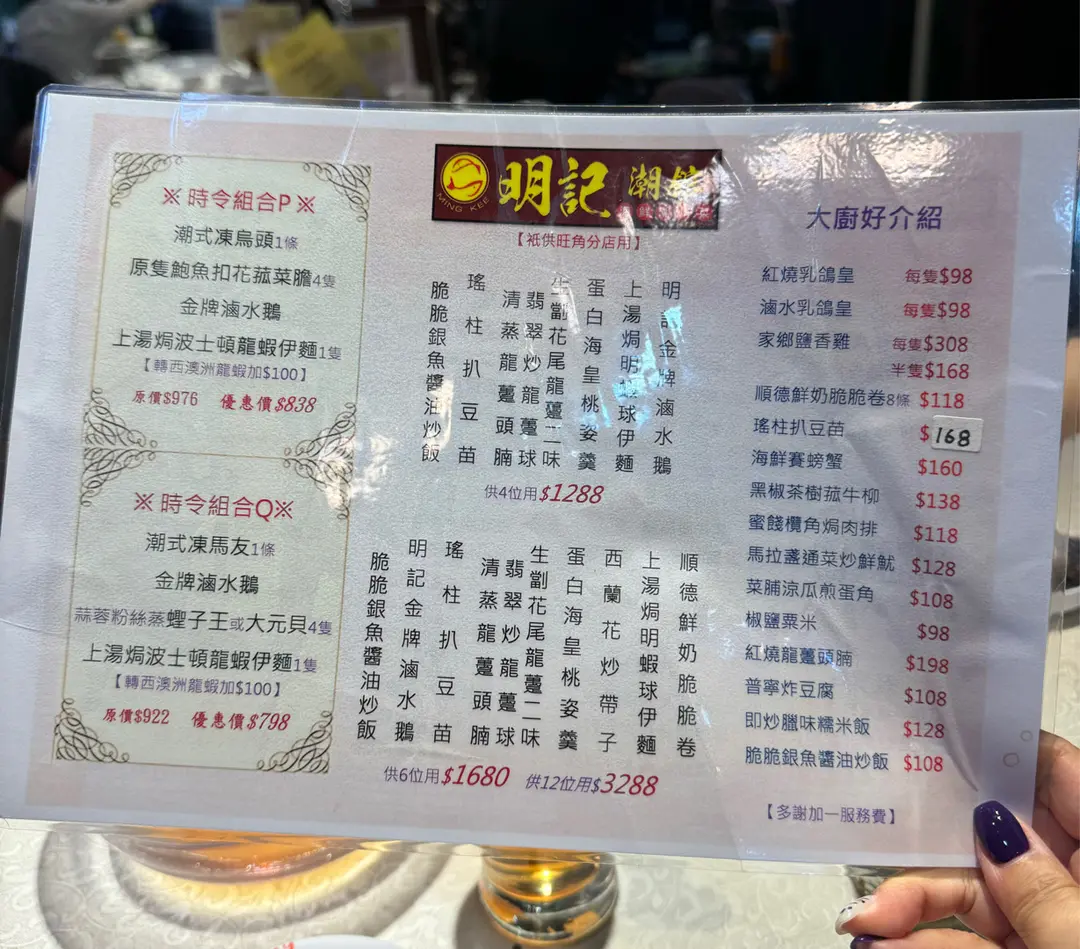 ※時令組合P※
潮式凍烏頭1條
原隻鮑魚扣花菰菜膽4隻
金牌滷水鵝
上湯焗波士頓龍蝦伊麵1隻
【轉西澳洲龍蝦加$100】
原價$976 優惠價$838
※時令組合Q※
潮式凍馬友1條
金牌滷水鵝
蒜蓉粉絲蒸蟶子王或大元貝4隻
上湯焗波士頓龍蝦伊麵1隻
【轉西澳洲龍蝦加$100】
原價$922 優惠價$798
MING KEE
明記潮館
【祇供旺角分店用】
明記金牌滷水鵝
上湯焗明蝦球伊麵
蛋白海皇桃姿羹
生劏花尾龍躉二味
翡翠炒龍躉球
清蒸龍躉頭腩
瑤柱扒豆苗
脆脆銀魚醬油炒飯
供4位用$1288
順德鮮奶脆脆卷
上湯焗明蝦球伊麵
西蘭花炒帶子
蛋白海皇桃姿羹
生劏花尾龍躉二味
翡翠炒龍躉球
清蒸龍躉頭腩
瑤柱扒豆苗
明記金牌滷水鵝
脆脆銀魚醬油炒飯
供6位用$1680 供12位用$3288
大廚好介紹
紅燒乳鴿皇 每隻$98
滷水乳鴿皇 每隻$98
家鄉鹽香雞 每隻$308
半隻$168
順德鮮奶脆脆卷8條 $118
瑤柱扒豆苗 $168
海鮮賽螃蟹 $160
黑椒茶樹菰牛柳 $138
蜜餞欖角焗肉排 $118
馬拉盞通菜炒鮮魷 $128
菜脯涼瓜煎蛋角 $108
椒鹽粟米 $98
紅燒龍躉頭腩 $198
普寧炸豆腐 $108
即炒臘味糯米飯 $128
脆脆銀魚醬油炒飯 $108
【多謝加一服務費】